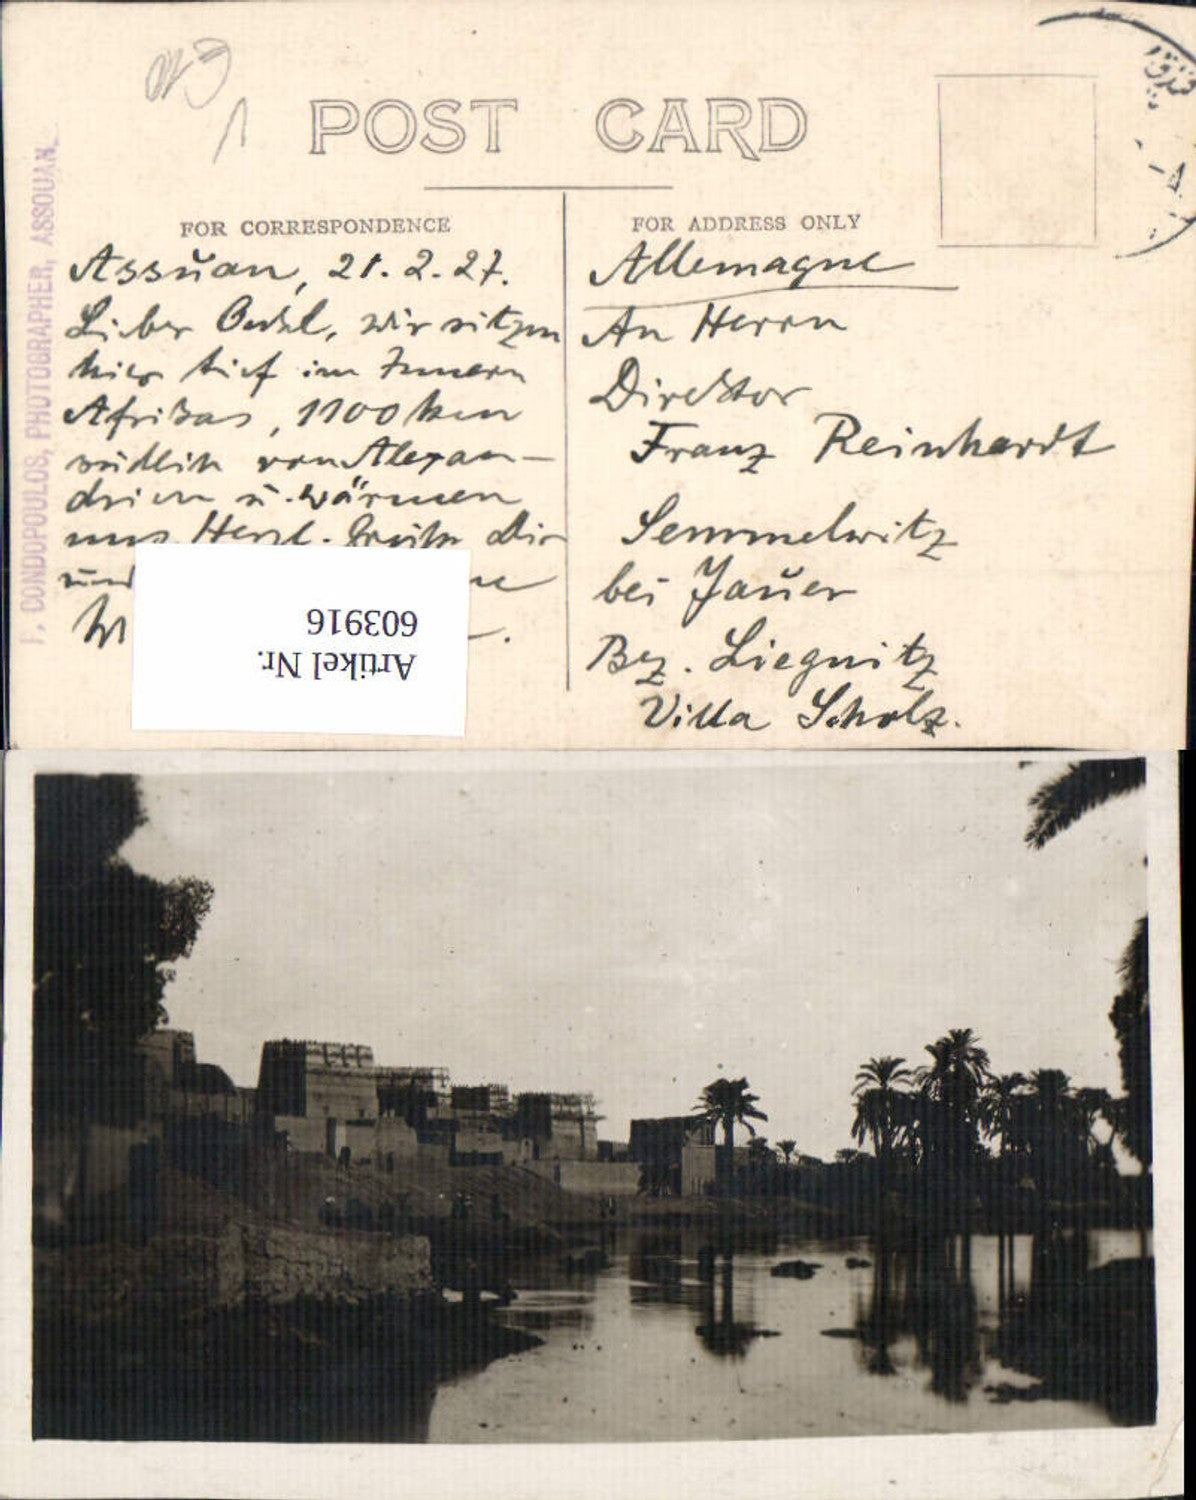 POST CARD
FOR CORRESPONDENCE
Assŭan, 21.2.27.
Lieber Onkel, wir sitzen
hier tief im Innern
Afrikas, 1100 km
südlich von Alexan-
drien ŭ. wärmen
uns. Herzl. Grüße Dir
ŭnd
FOR ADDRESS ONLY
Allemagne
An Herrn
Direktor
Franz Reinhardt
Semmelwitz
bei Jaŭer
Bez. Liegnitz
Villa Scholz.
CONDOPOULOS, PHOTOGRAPHER, ASSOUAN
Artikel Nr.
603916